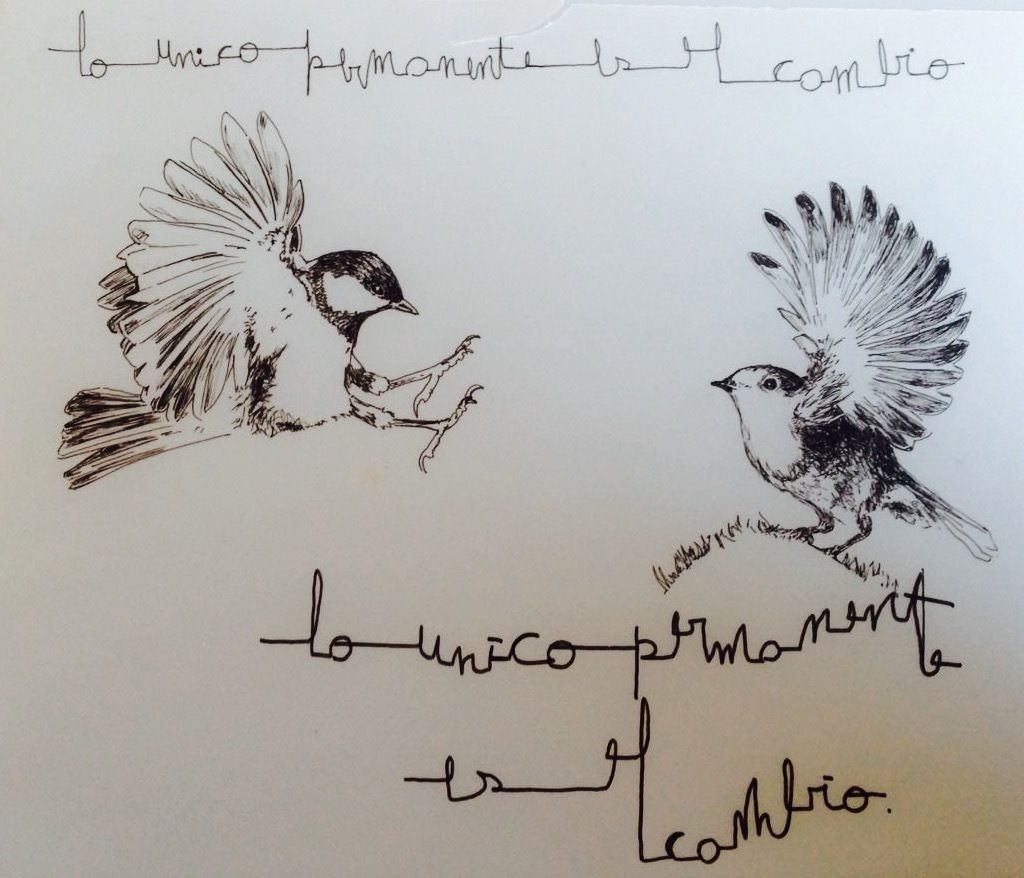 lo unico permanente es el cambio
lo unico permanente
es el cambio.